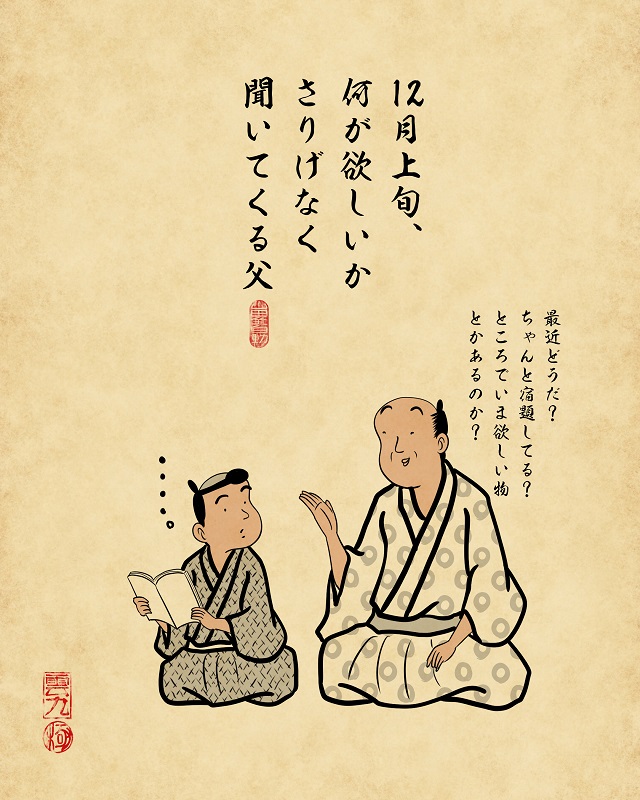 12月上旬、
何が欲しいか
さりげなく
聞いてくる父
最近どうだ？
ちゃんと宿題してる？
ところでいま欲しい物
とかあるのか？